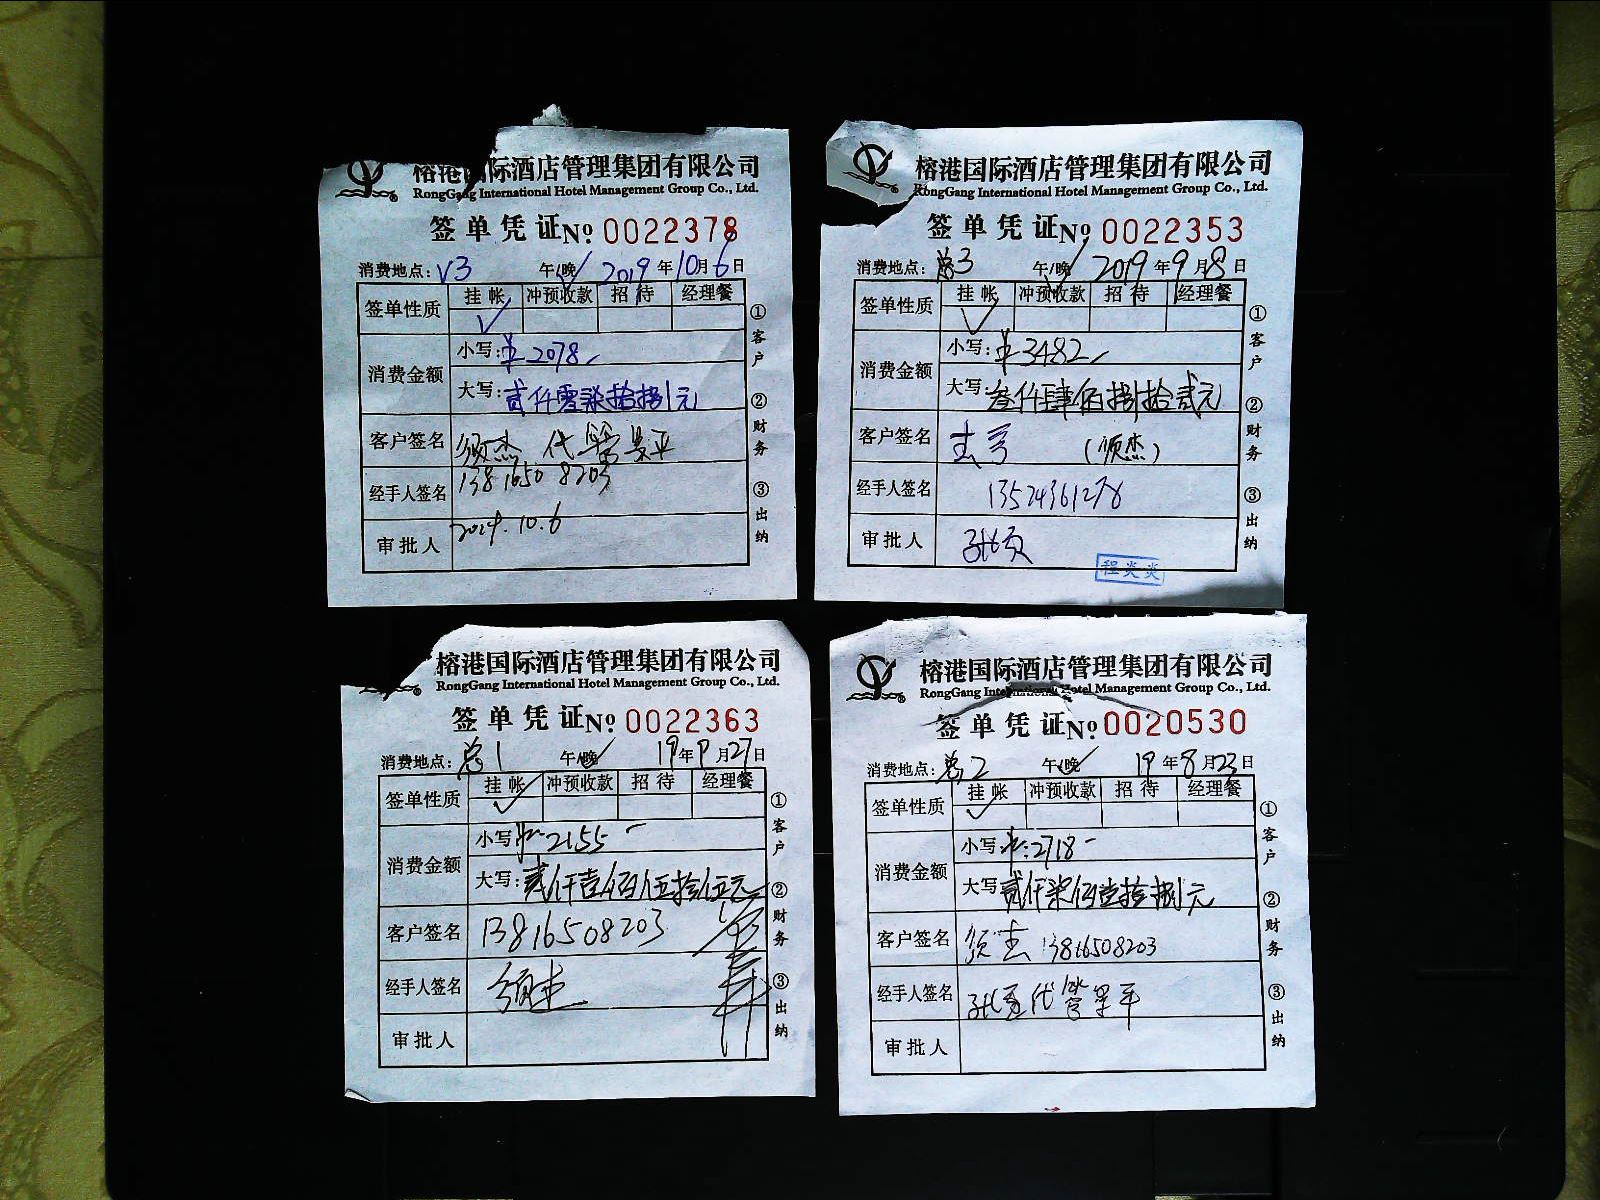 榕港国际酒店管理集团有限公司
RongGang International Hotel Management Group Co., Ltd.
签单凭证 № 0022378
消费地点: V3 午/晚 2019年10月6日
签单性质 挂帐 冲预收款 招待 经理餐
✓
消费金额 小写: ¥2078
大写: 贰仟零柒拾捌元
客户签名 须杰 代管景平
经手人签名 13816508203
审批人 2019.10.6
①客户 ②财务 ③出纳
榕港国际酒店管理集团有限公司
RongGang International Hotel Management Group Co., Ltd.
签单凭证 № 0022353
消费地点: 总3 午/晚 2019年9月8日
签单性质 挂帐 冲预收款 招待 经理餐
✓
消费金额 小写: ¥3482
大写: 叁仟肆佰捌拾贰元
客户签名 (须杰)
经手人签名 13524361278
审批人
程炎炎
①客户 ②财务 ③出纳
榕港国际酒店管理集团有限公司
RongGang International Hotel Management Group Co., Ltd.
签单凭证 № 0022363
消费地点: 总1 午/晚 19年9月27日
签单性质 挂帐 冲预收款 招待 经理餐
✓
消费金额 小写: ¥2155
大写: 贰仟壹佰伍拾伍元
客户签名 13816508203
经手人签名 须杰
审批人
①客户 ②财务 ③出纳
榕港国际酒店管理集团有限公司
RongGang International Hotel Management Group Co., Ltd.
签单凭证 № 0020530
消费地点: 总2 午/晚 19年8月23日
签单性质 挂帐 冲预收款 招待 经理餐
✓
消费金额 小写: ¥:2718
大写: 贰仟柒佰壹拾捌元
客户签名 须杰 13816508203
经手人签名 代管景平
审批人
①客户 ②财务 ③出纳